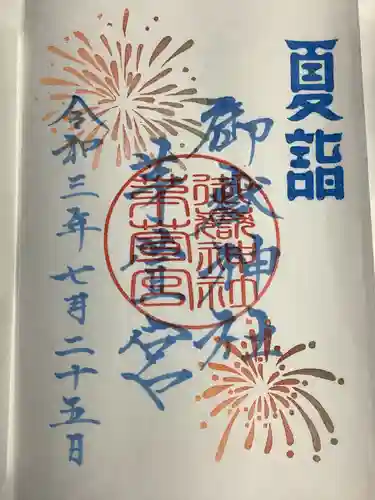 夏詣
御嶽神社
茅萱宮
令和三年七月二十五日
御嶽神社
茅萱宮